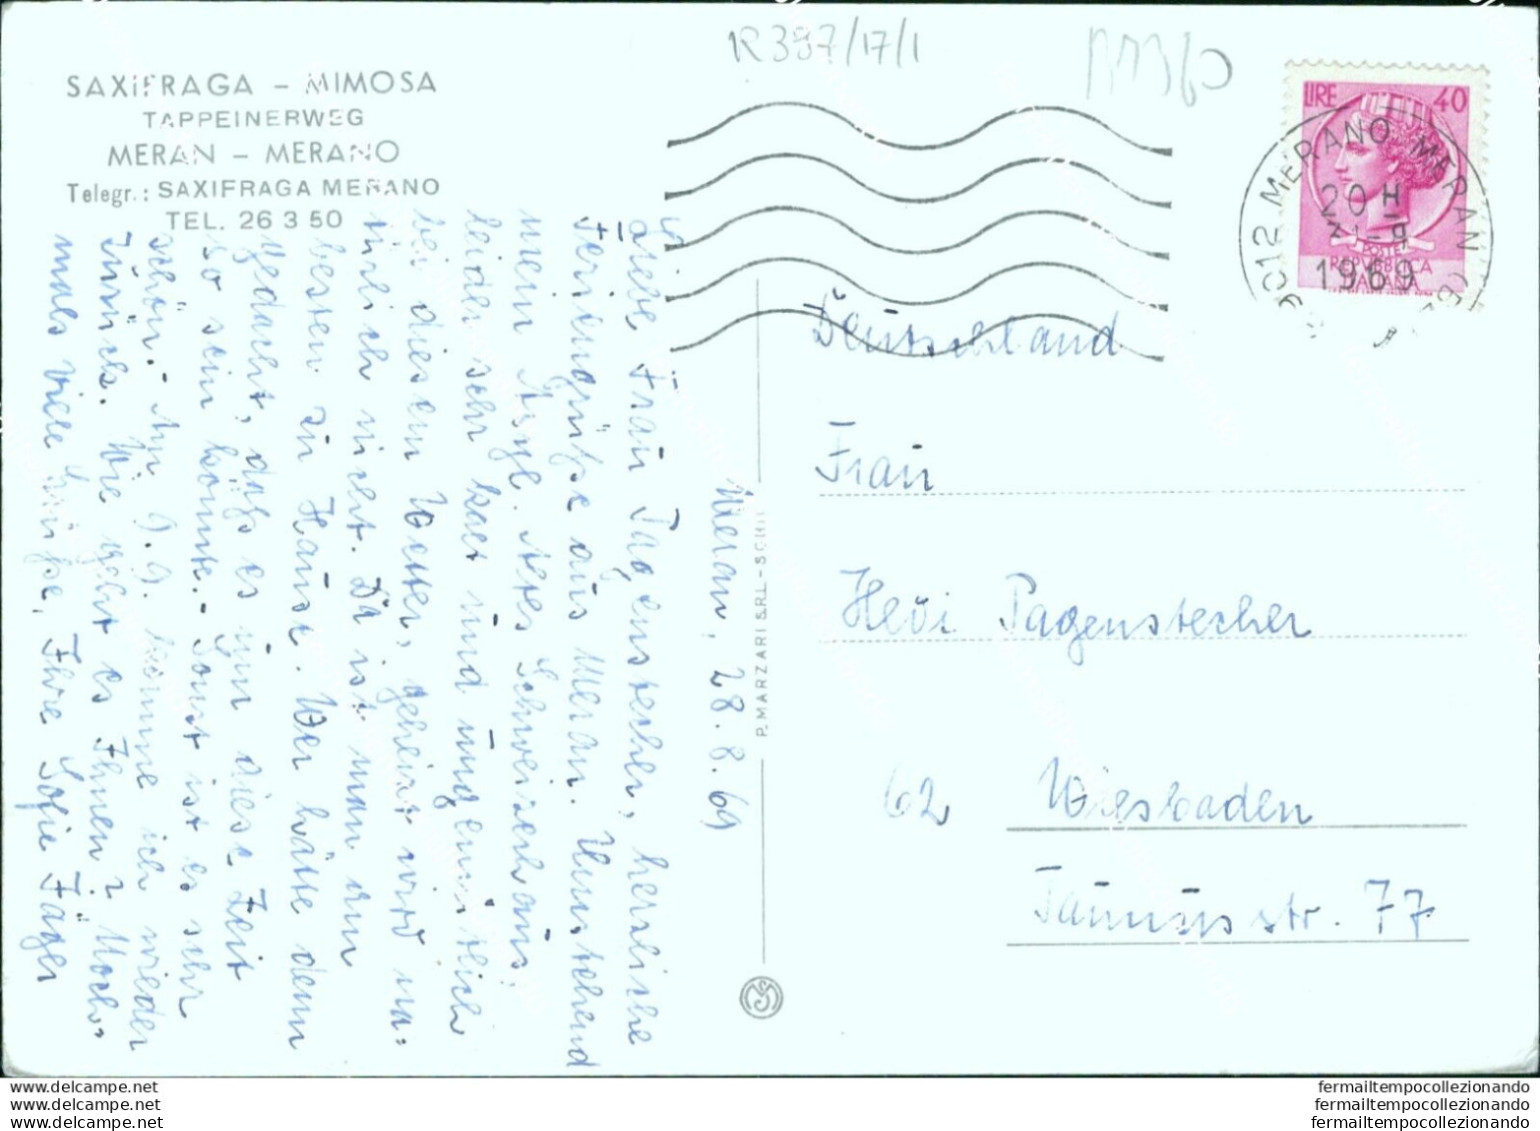 R397/17/1
SAXIFRAGA – MIMOSA
TAPPEINERWEG
MERAN – MERANO
Telegr.: SAXIFRAGA MERANO
TEL. 26 3 50
LIRE 40
POSTE
REPVBBLICA
ITALIANA
MERANO MERAN
20 H
31-9
1969
Meran, 28.8.69
Liebe Frau Pagenstecher, herzliche
Feriengrüße aus Meran. Umstehend
mein Asyl. Altes Schweizerhaus,
leider sehr kalt und ungemütlich
bei diesem Wetter, geheizt wird na-
türlich nicht. Da ist man am
besten zu Hause. Wer hätte denn
gedacht, daß es um diese Zeit
so sein könnte. Sonst ist es sehr
schön. Am 9.9. komme ich wieder
zurück. Wie geht es Ihnen? Noch-
mals viele Grüße, Ihre Sofie Jäger
P. MARZARI S.R.L. - SCHI
Deutschland
Frau
Hedi Pagenstecher
62 Wiesbaden
Taunusstr. 77
www.delcampe.net
www.delcampe.net
www.delcampe.net
fermailtempocollezionando
fermailtempocollezionando
fermailtempocollezionando